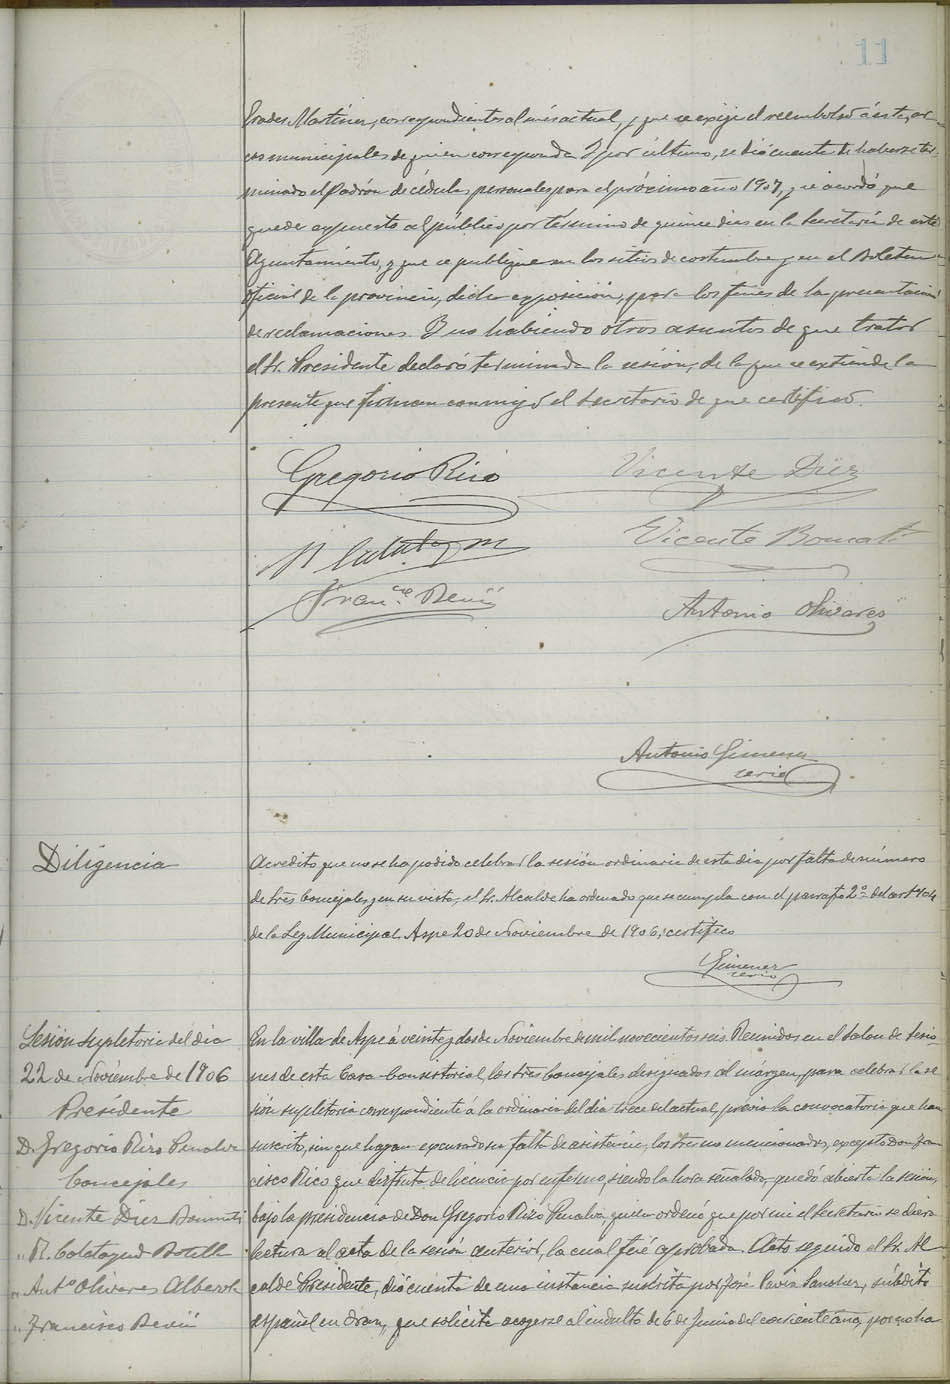 11
Prades Martínez, correspondientes al més actual, y que se exija el reembolso á este, ar-
cas municipales de quien corresponda. Y por último, se dió cuenta de haberse ter-
minado el Padrón de cédulas personales para el próximo año 1907, y se acordó que
quede expuesto al público por término de quince dias en la Secretaría de este
Ayuntamiento, y que se publique en los sitios de costumbre y en el Boletin
oficial de la provincia, dicha exposición, para los fines de la presentacion
de reclamaciones. Y no habiendo otros asuntos de que tratar
el Sr. Presidente declaró terminada la sesión, de la que se extiende la
presente que firman conmigo el Secretario de que certifico.
Gregorio Rizo
Vicente Diez
Vicente Bonmatí
Antonio Olivares
Antonio Gimenez
Diligencia
Acredito que no se ha podido celebrar la sesión ordinaria de este dia por falta de número
de tres Concejales y en su vista, el Sr. Alcalde ha ordenado que se cumpla con el parrafo 2º del art. 104
de la Ley Municipal. Aspe 20 de Noviembre de 1906, certifico
Gimenez
Sesión supletoria del dia
22 de Noviembre de 1906
Presidente
D. Gregorio Rizo Penalva
Concejales
D. Vicente Diez Bonmatí
„ R. Calatayud Botella
„ Antº Olivares Alberola
„ Francisco
En la villa de Aspe á veinte y dos de Noviembre de mil novecientos seis. Reunidos en el Salon de Sesio-
nes de esta Casa Consistorial, los tres Concejales designados al margen, para celebrar la se
sión supletoria correspondiente á la ordinaria del dia trece del actual, previa la convocatoria que han
suscrito, sin que hayan excusado su falta de asistencia, los tres no mencionados, excepto Don Fran
cisco Rico que disfruta de licencia por enfermo, siendo la hora señalada, quedó abierta la sesión,
bajo la presidencia de Don Gregorio Rizo Penalva, quien ordenó que por mi el Secretario se diera
lectura al acta de la sesión anterior, la cual fué aprobada. Acto seguido el Sr. Al
calde Presidente, dió cuenta de una instancia suscrita por José Pavia Sanchez, súbdito
español en Oran, que solicita acogerse al indulto de 6 de Junio del corriente año, por no ha